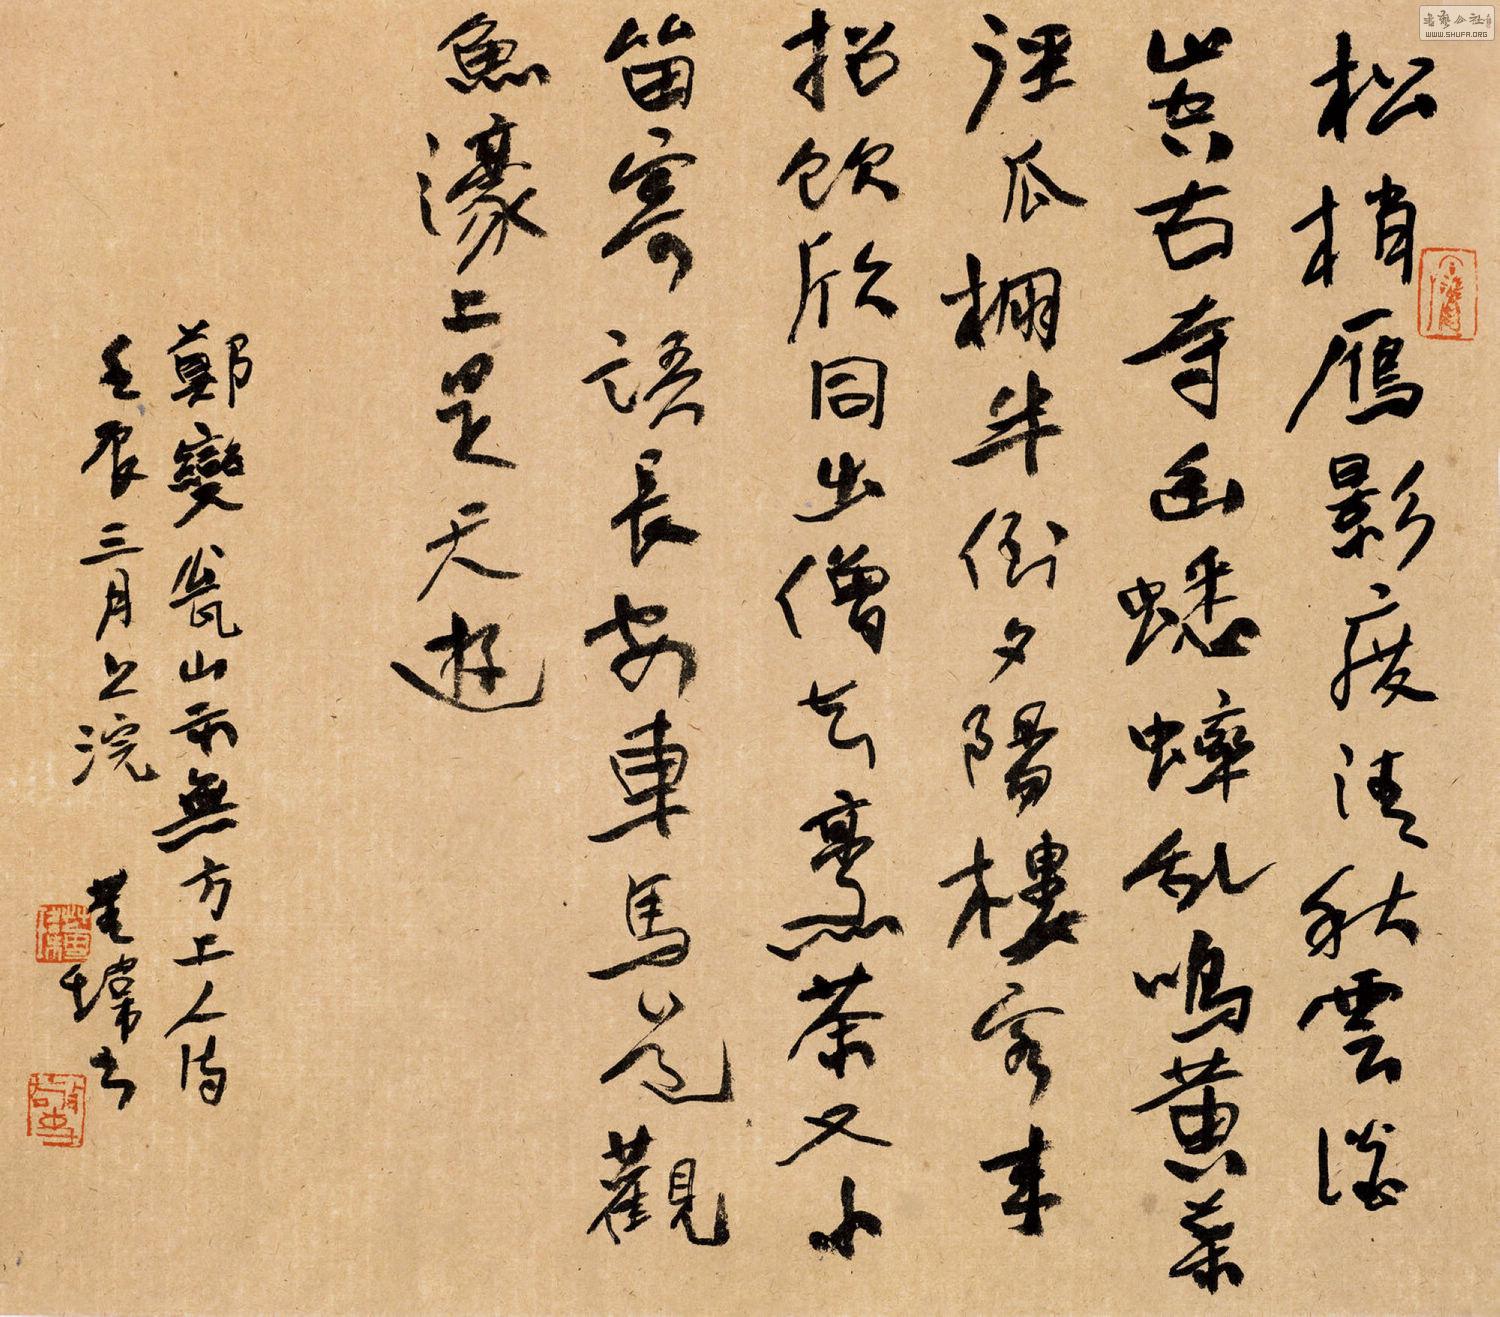 松梢雁影度清秋雲淡
山空古寺幽蟋蟀乱鳴黄葉
徑瓜棚半倒夕陽樓客来
招飲欣同出僧去烹茶又小
留寄語長安車馬道觀
魚濠上是天遊
鄭燮瓮山示無方上人詩
壬辰三月上浣 董瑋书
书艺公社
WWW.SHUFA.ORG